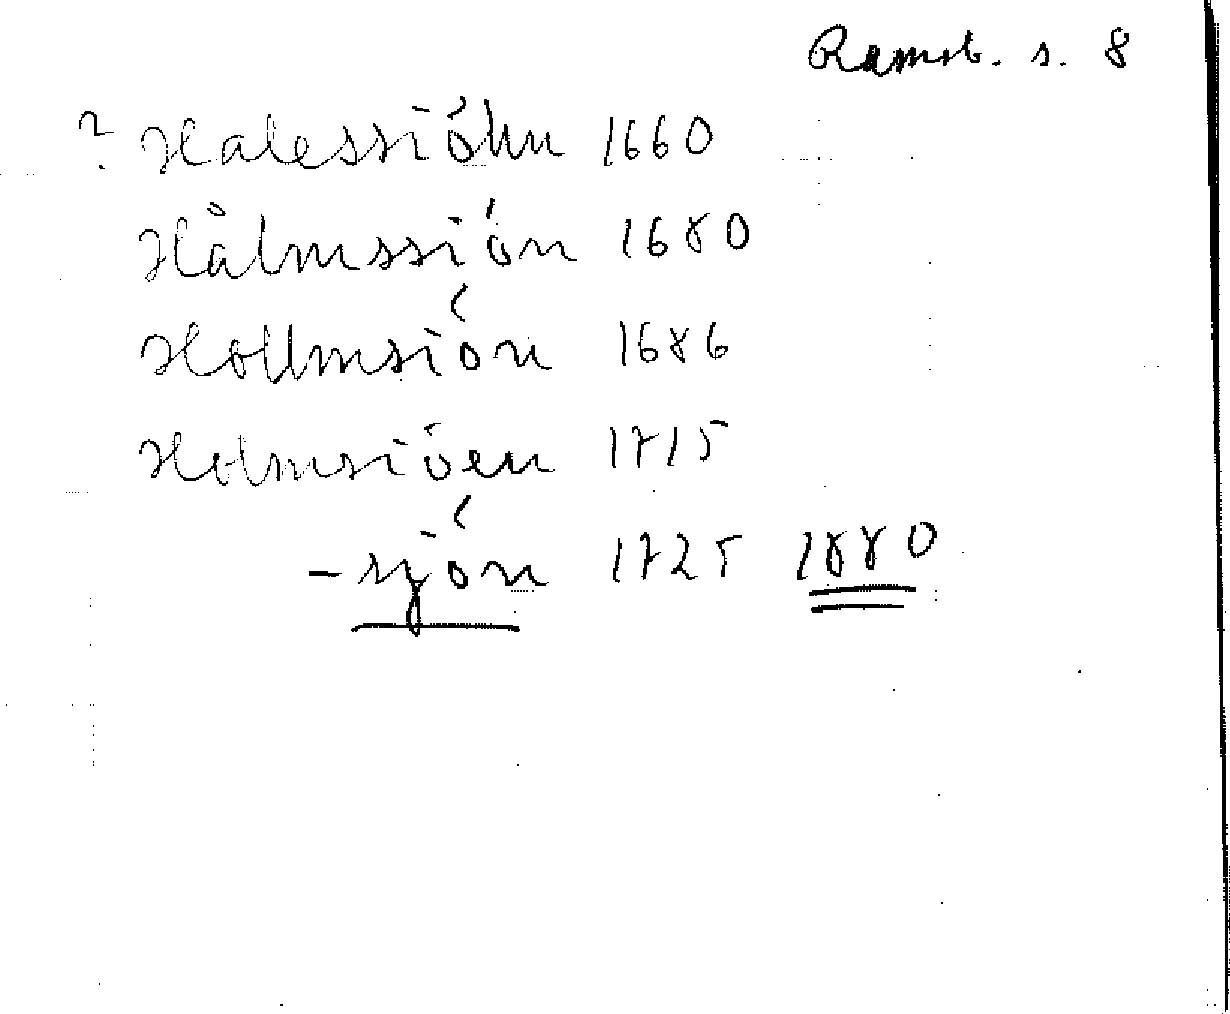 Ramsb. s. 8
? Halessiöhn 1660
Hålmssiön 1680
Hollmsiön 1686
Holmsiöen 1715
-sjön 1725 1880